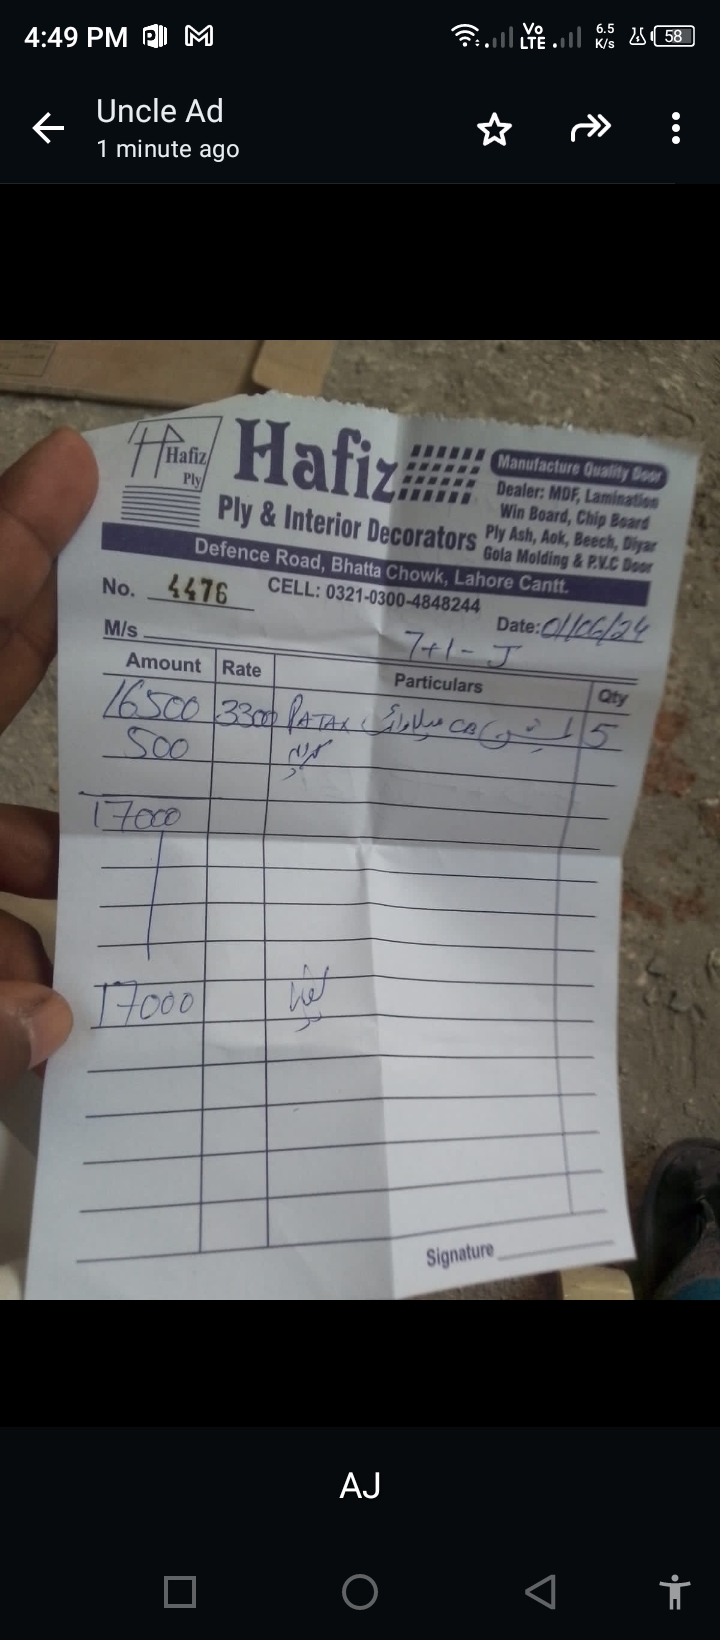 4:49 PM
Vo LTE 6.5 K/s 58
Uncle Ad
1 minute ago
Hafiz Ply
Hafiz
Ply & Interior Decorators
Manufacture Quality Door
Dealer: MDF, Lamination
Win Board, Chip Board
Ply Ash, Aok, Beech, Diyar
Gola Molding & P.V.C Door
Defence Road, Bhatta Chowk, Lahore Cantt.
No. 4476 CELL: 0321-0300-4848244
Date: 01/06/24
M/s 7+1- J
Amount Rate Particulars Qty
16500 3300 PATAX CB 5
500 کرایہ
17000
17000
Signature
AJ